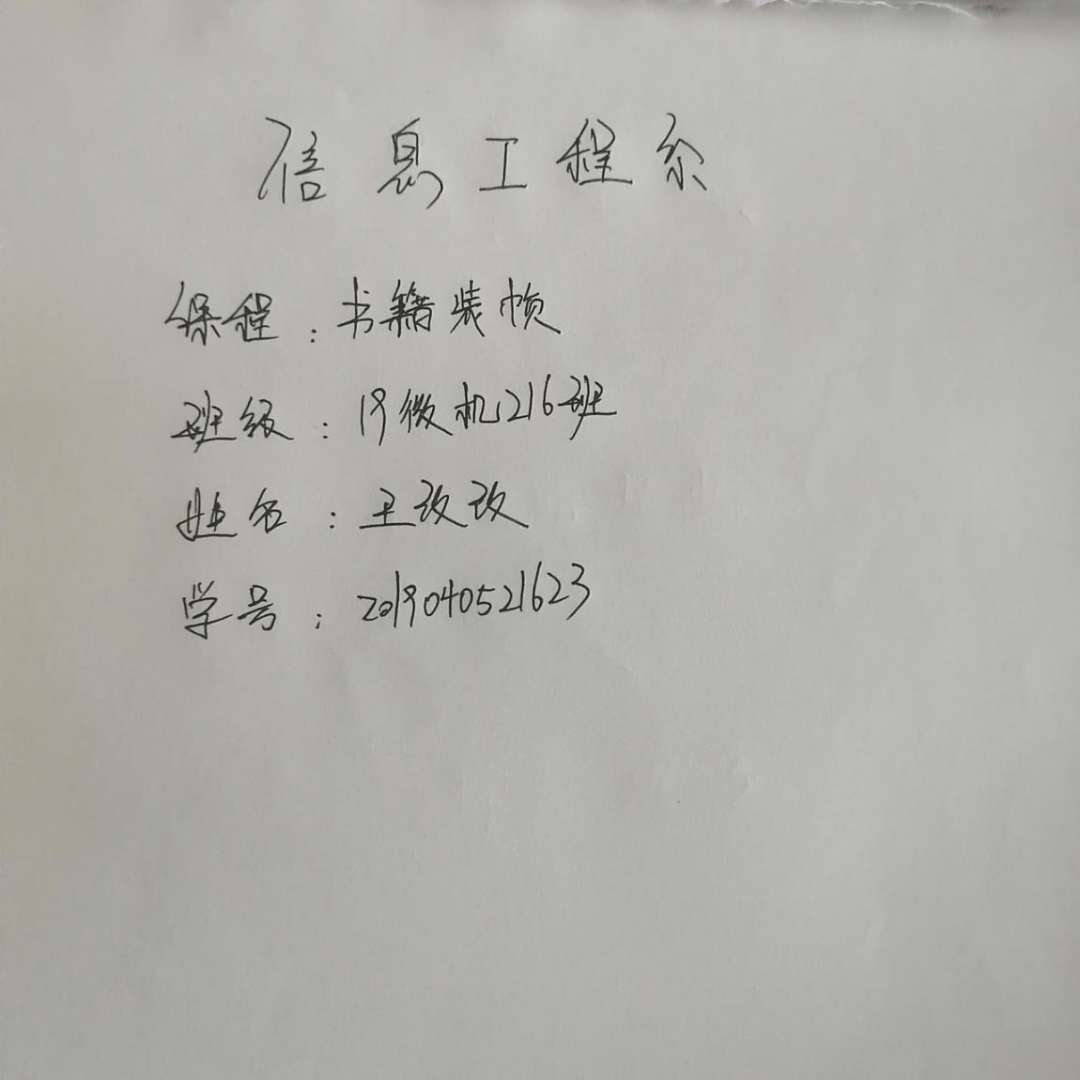 信息工程系
课程：书籍装帧
班级：19微机216班
姓名：王改改
学号：2019040521623